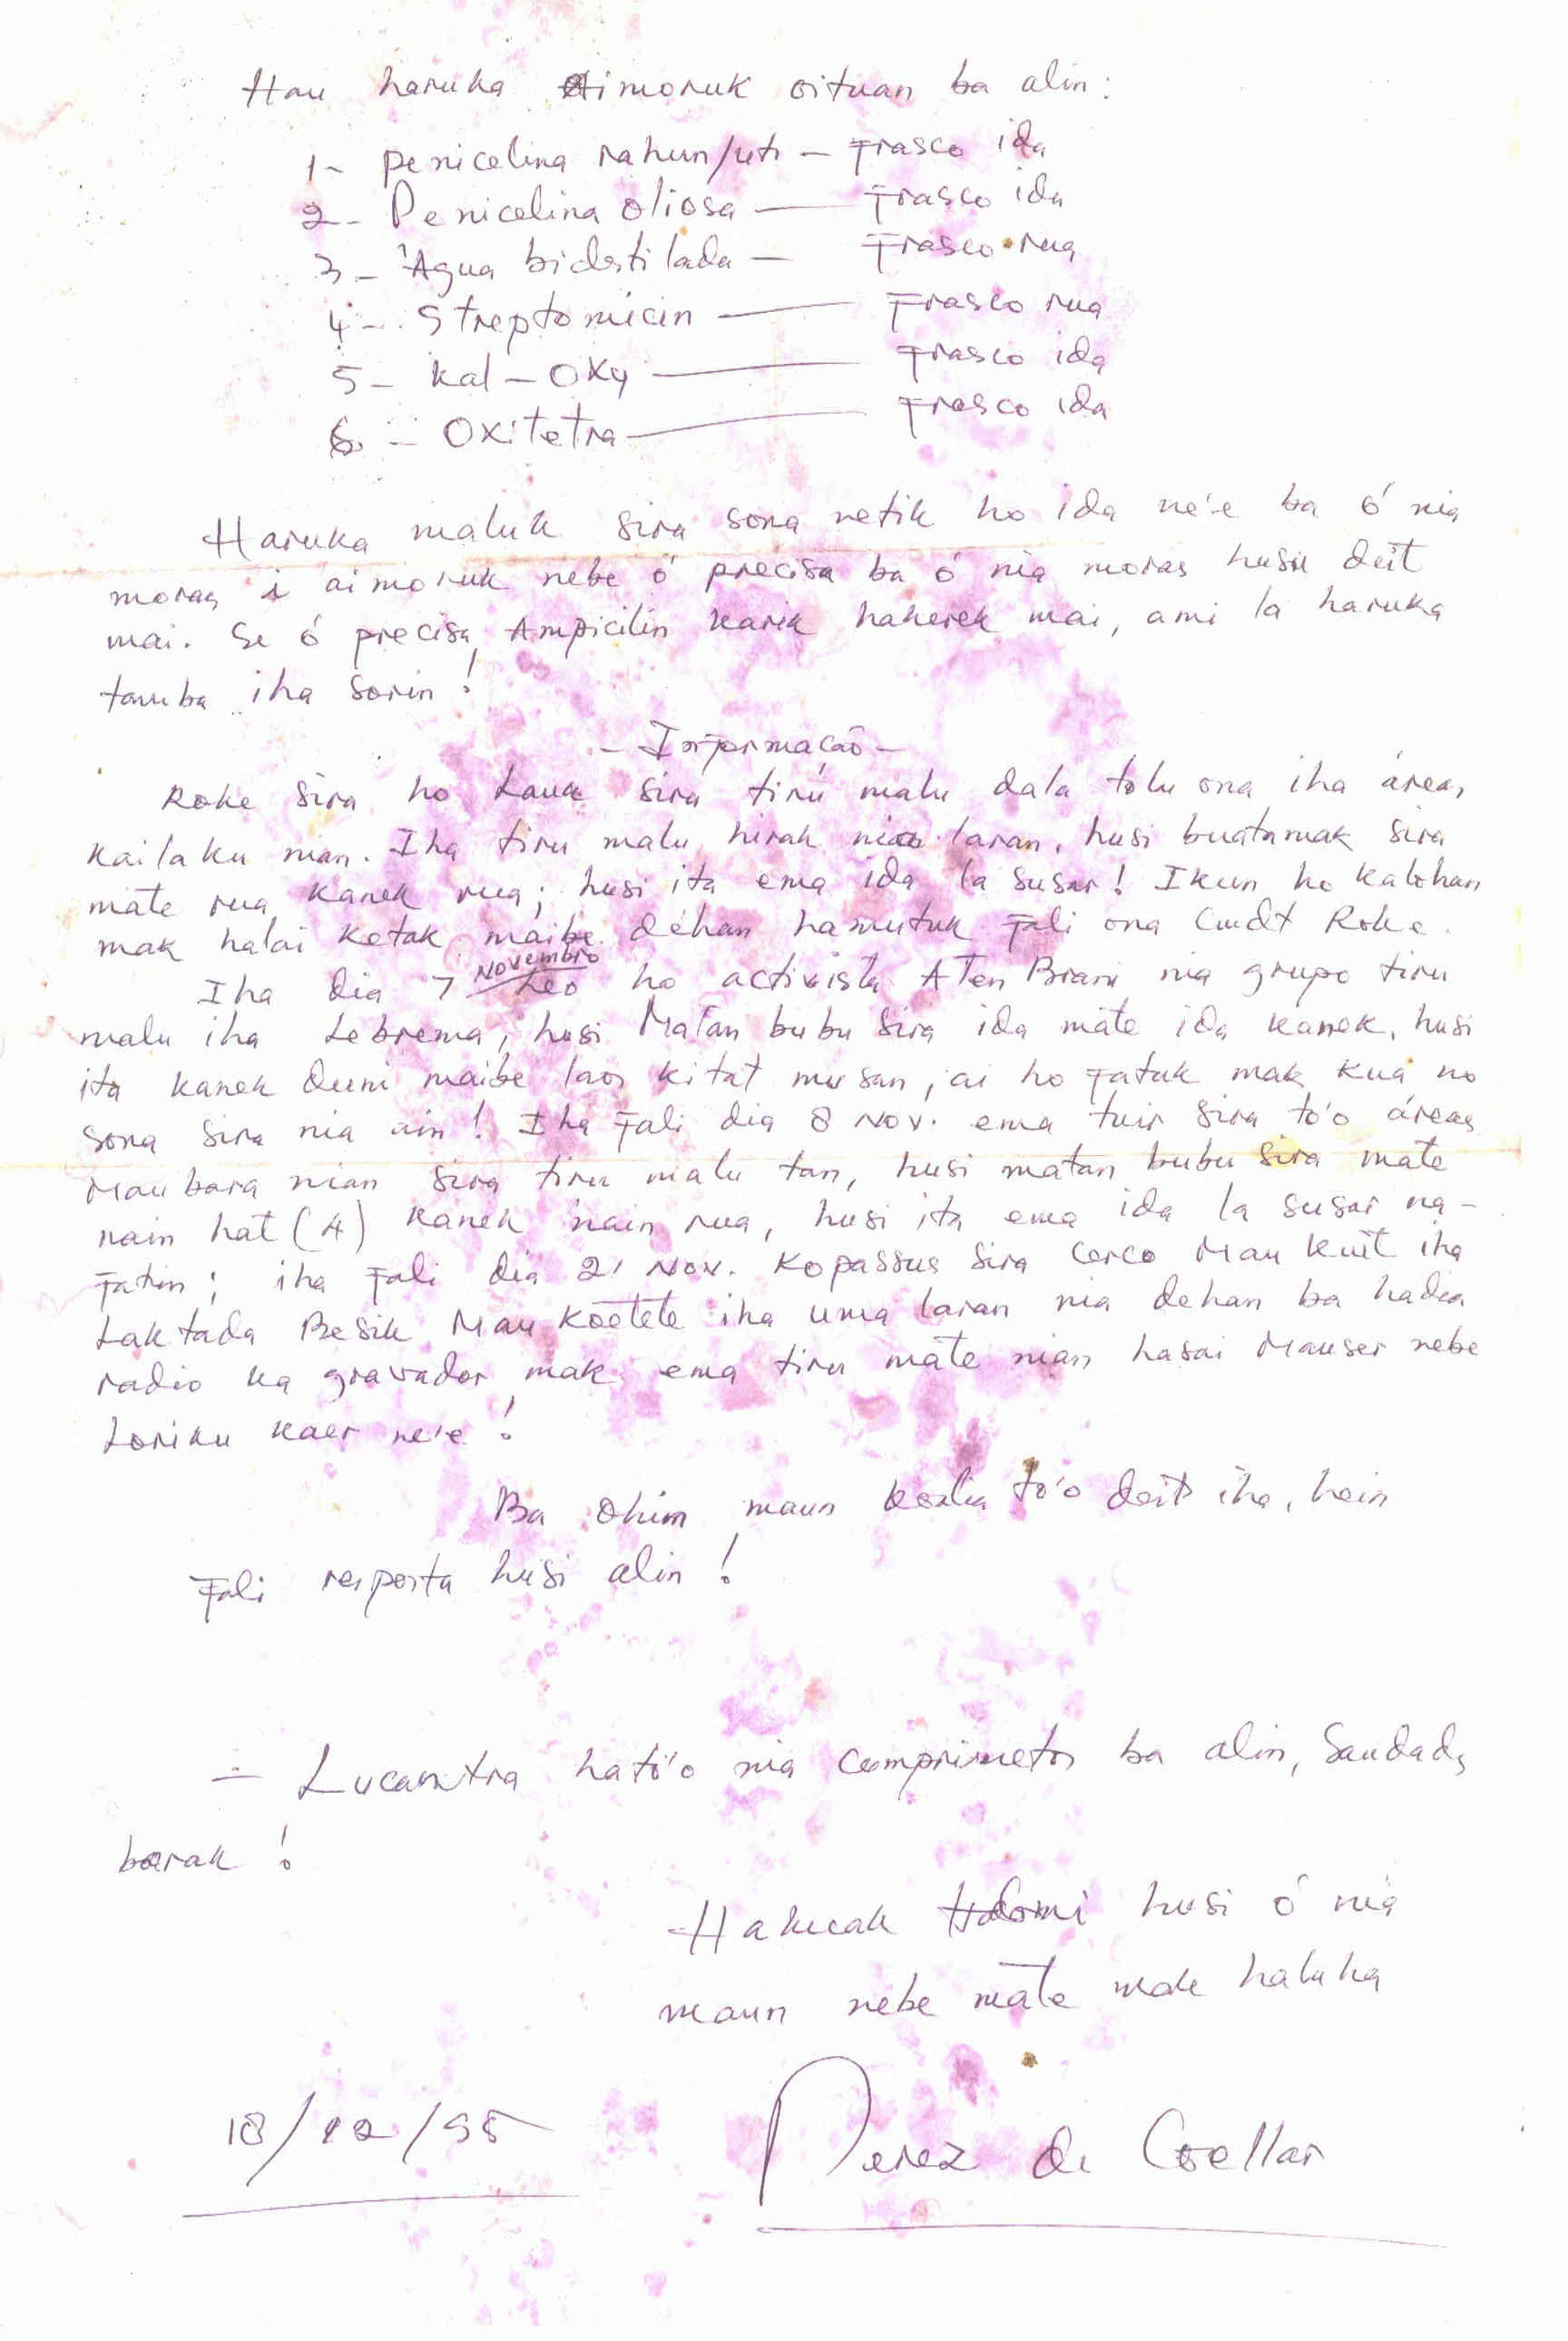 Hau haruka Aimoruk oituan ba alin:
1- penicelina rahun/uti - Frasco ida
2- Penicelina oliosa - Frasco ida
3- Água bidestilada - Frasco rua
4- Streptomicin - Frasco rua
5- Kal-Oxy - Frasco ida
6- Oxitetra - Frasco ida
Haruka maluk sira sona netik ho ida ne'e ba ó nia
moras i aimoruk nebe ó precisa ba ó nia moras husu deit
mai. Se ó precisa Ampicilin karik hakerek mai, ami la haruka
tamba iha sorin!
- Informação -
Roke sira ho Lauk sira tiru malu dala tolu ona iha áreas
Kailaku nian. Iha tiru malu hirak nia laran, husi buatamak sira
mate rua kanek rua; husi ita ema ida la susar! Ikun ho Kalohan
mak halai ketak maibe dehan hamutuk Fali ona Cmdt Roke.
Iha dia 7 Novembro Leo ho activista Aten Brani nia grupo tiru
malu iha Lebrema, husi Matan bubu sira ida mate ida kanek, husi
ita kanek duni maibe laos kilat musan, ai ho Fatuk mak kua no
sona sira nia ain! Iha Fali dia 8 Nov. ema tuir sira to'o áreas
Maubara nian sira tiru malu tan, husi matan bubu sira mate
nain hat (4) kanek nain rua, husi ita ema ida la susar na-
Fatin; iha Fali dia 21 Nov. Kopassus sira cerco Mau Kuit iha
Laktada Besik Mau Koetete iha uma laran nia dehan ba hadia
radio ka gravador mak ema tiru mate nian hasai Mauser nebe
Loriku kaer ne'e!
Ba ohim maun koalia to'o deit iha, hein
Fali resposta husi alin!
- Lucamtra hato'o nia comprimetos ba alin, Saudads
barak!
Hakuak Hadomi husi ó nia
maun nebe mate mak haluha
18/12/95 Perez de Coellar